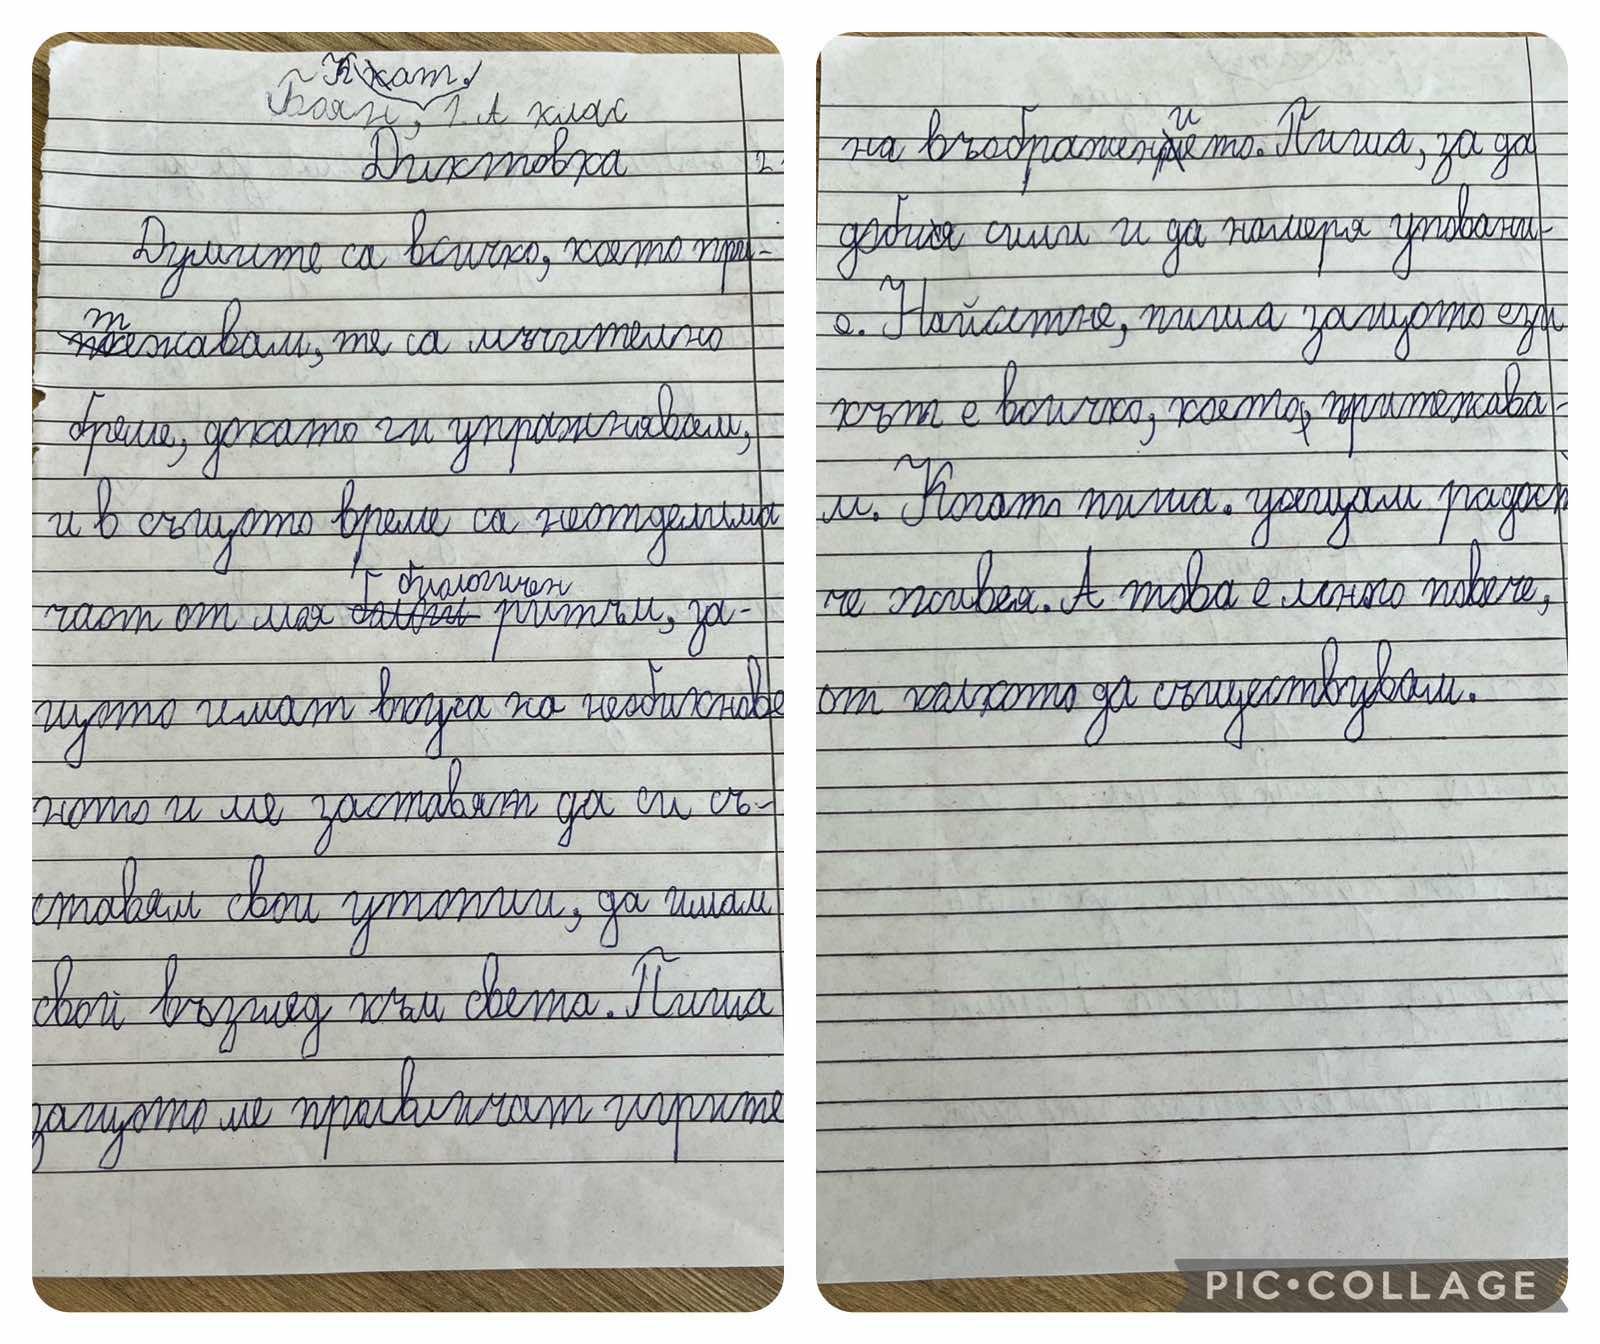 Боян, 1. А клас
Диктовка
Думите са всичко, което при-
тежавам, те са мъчително
бреме, докато ги упражнявам,
и в същото време са неотделима
част от моя биологичен ритъм, за-
щото имат вкуса на необикнове
ното и ме заставят да си съ-
ставям свои утопии, да имам
свой възглед към света. Пиша
защото ме привличат игрите
на въображението. Пиша, за да
добия сили и да намеря уповани-
е. Найсетне, пиша защото ези
кът е всичко, което, притежава-
м. Когато пиша. усещам радост
че живея. А това е много повече,
от колкото да съществувам.
PIC•COLLAGE